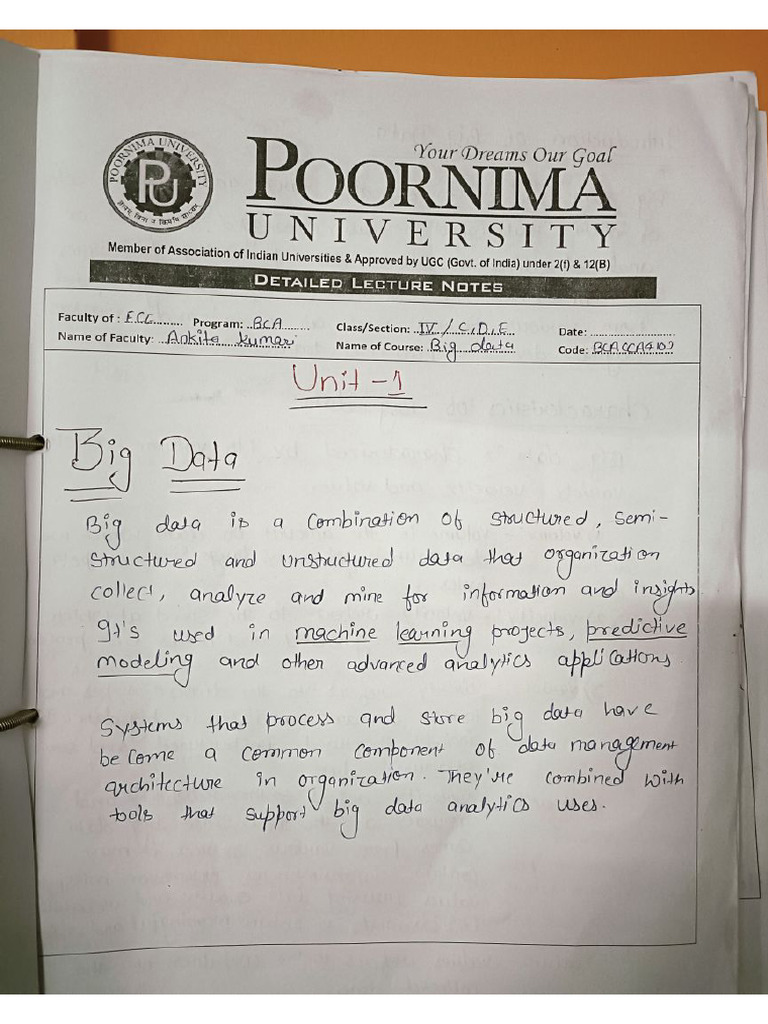 POORNIMA UNIVERSITY
PU
Your Dreams Our Goal
POORNIMA
UNIVERSITY
Member of Association of Indian Universities & Approved by UGC (Govt. of India) under 2(f) & 12(B)
DETAILED LECTURE NOTES
Faculty of : ECE Program: BCA Class/Section: IV / C,D,E Date:
Name of Faculty: Ankita kumari Name of Course: Big data Code:
Unit -1
Big Data
Big data is a combination of structured, semi-
structured and unstructured data that organization
collect, analyze and mine for information and insights
It's used in machine learning projects, predictive
modeling and other advanced analytics applications.
Systems that process and store big data have
be come a common component of data management
architecture in organization. They're combined with
tools that support big data analytics uses.